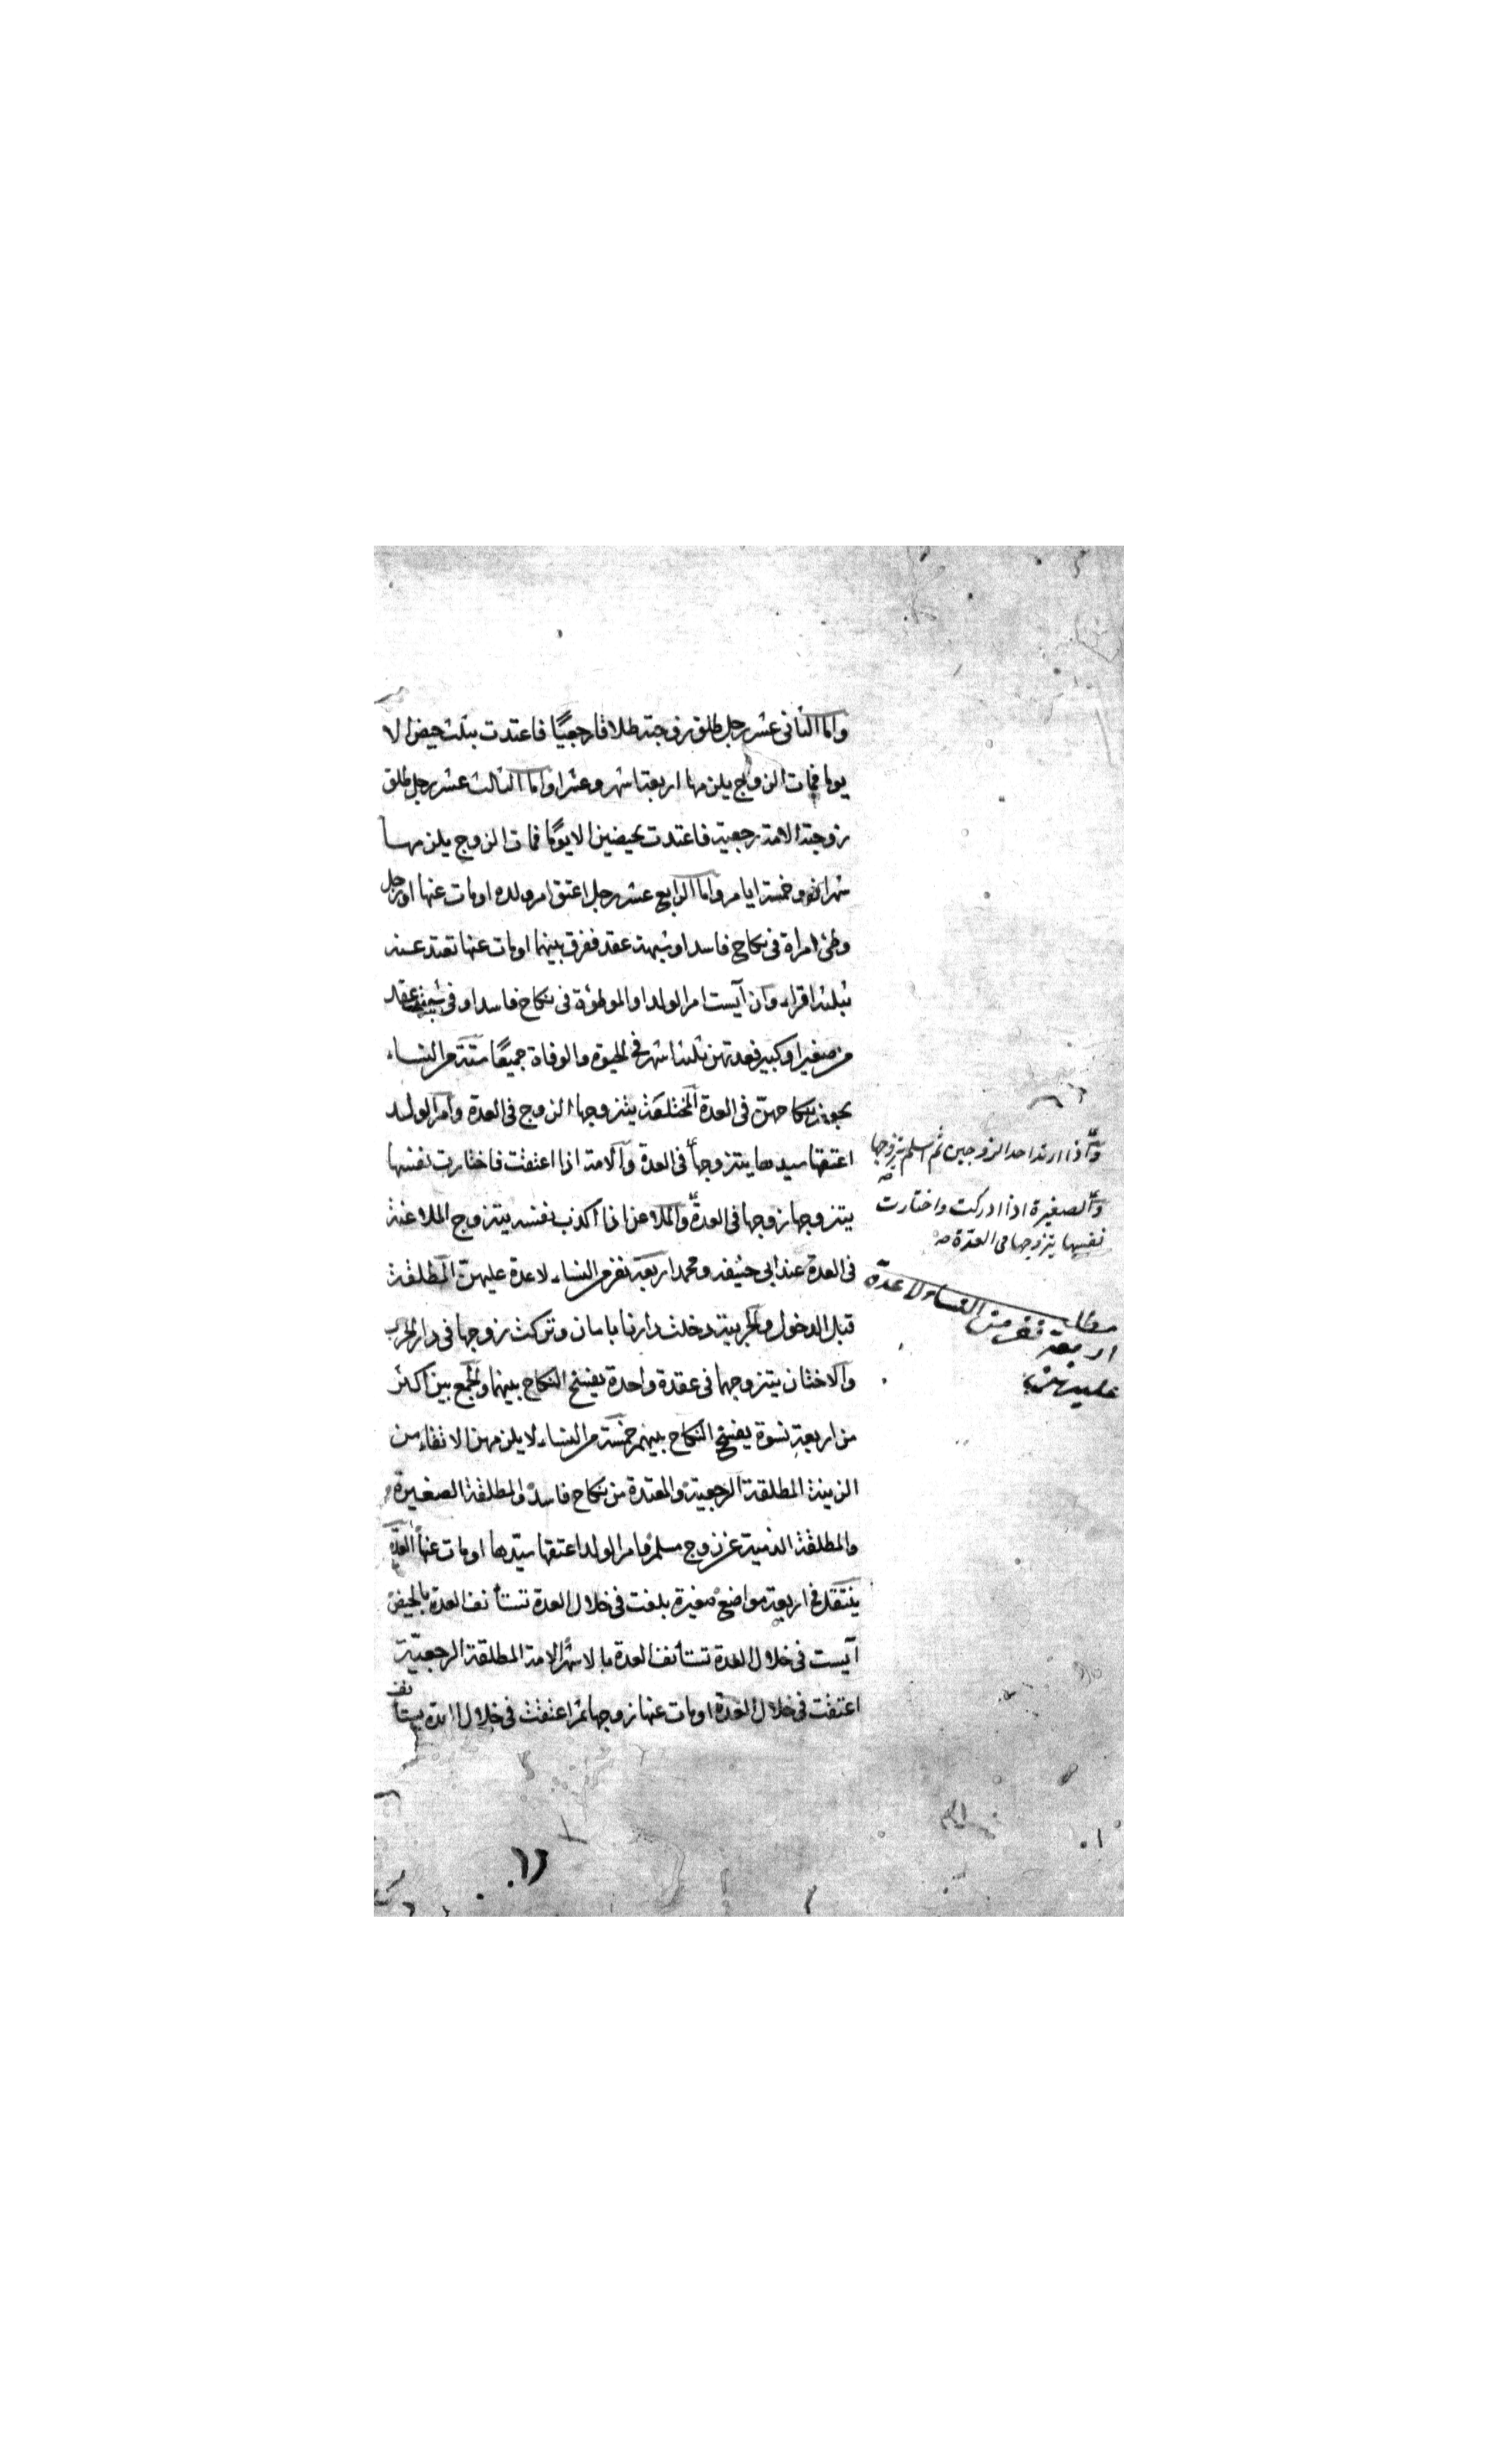 واما الثانى عشر رجل طلق زوجته طلاقا رجعيًا فاعتدت بثلث حيض الا
يوما فمات الزوج يلزمها اربعة اشهر وعشرا واما الثالث عشر رجل طلق
زوجته الامة رجعية فاعتدت بحيضين الا يومًا فمات الزوج يلزمها
شهران وخمسة ايام واما الرابع عشر رجل اعتق ام ولده او مات عنها او رجل
وطئ امراة فى نكاح فاسد او شبهة عقد ففرق بينهما او مات عنها تعتد عنه
بثلثة اقراء وان آيست ام الولد او الموطؤة فى نكاح فاسد او فى شبهة عقد
من صغير او كبير فعدتهن ثلثة اشهر فى الحيوة والوفاة جميعًا ستة من النساء
يجوز نكاحهنّ فى العدة المختلعة يتزوجها الزوج فى العدة وام الولد
اعتقها سيدها يتزوجها فى العدة والامة اذا اعتقت فاختارت نفسها
يتزوجها زوجها فى العدة والملاعن اذا اكذب نفسه يتزوج الملاعنة
فى العدة عند ابى حنيفه ومحمد اربعة نفر من النساء لا عدة عليهنّ المطلقة
قبل الدخول والحربية دخلت دارنا بامان وتركت زوجها فى دار الحرب
والاختان يتزوجهما فى عقدة واحدة يفسخ النكاح بينهما والجمع بين اكثر
من اربعة نسوة يفسخ النكاح بينهم خمسة من النساء لا يلزمهن الاتقاء من
الزينة المطلقة الرجعية والمعتدة من نكاح فاسد والمطلقة الصغيرة
والمطلقة الذمية عن زوج مسلم وام الولد اعتقها سيّدها او مات عنها العدّة
ينتقل فى اربعة مواضع صغيرة بلغت فى خلال العدة تستأنف العدة بالحيض
آيست فى خلال العدة تستأنف العدة بالاشهر الامة المطلقة الرجعيّة
اعتقت فى خلال العدة او مات عنها زوجها ثم اعتقت فى خلال العدة يستأنف
وآذا ارتد احد الزوجين ثم اسلم يتزوجها
صح
والصغيرة اذا ادركت واختارت
نفسها يتزوجها فى العدّة صح
مطلب
اربعة نفر من النساء لا عدة
عليهن